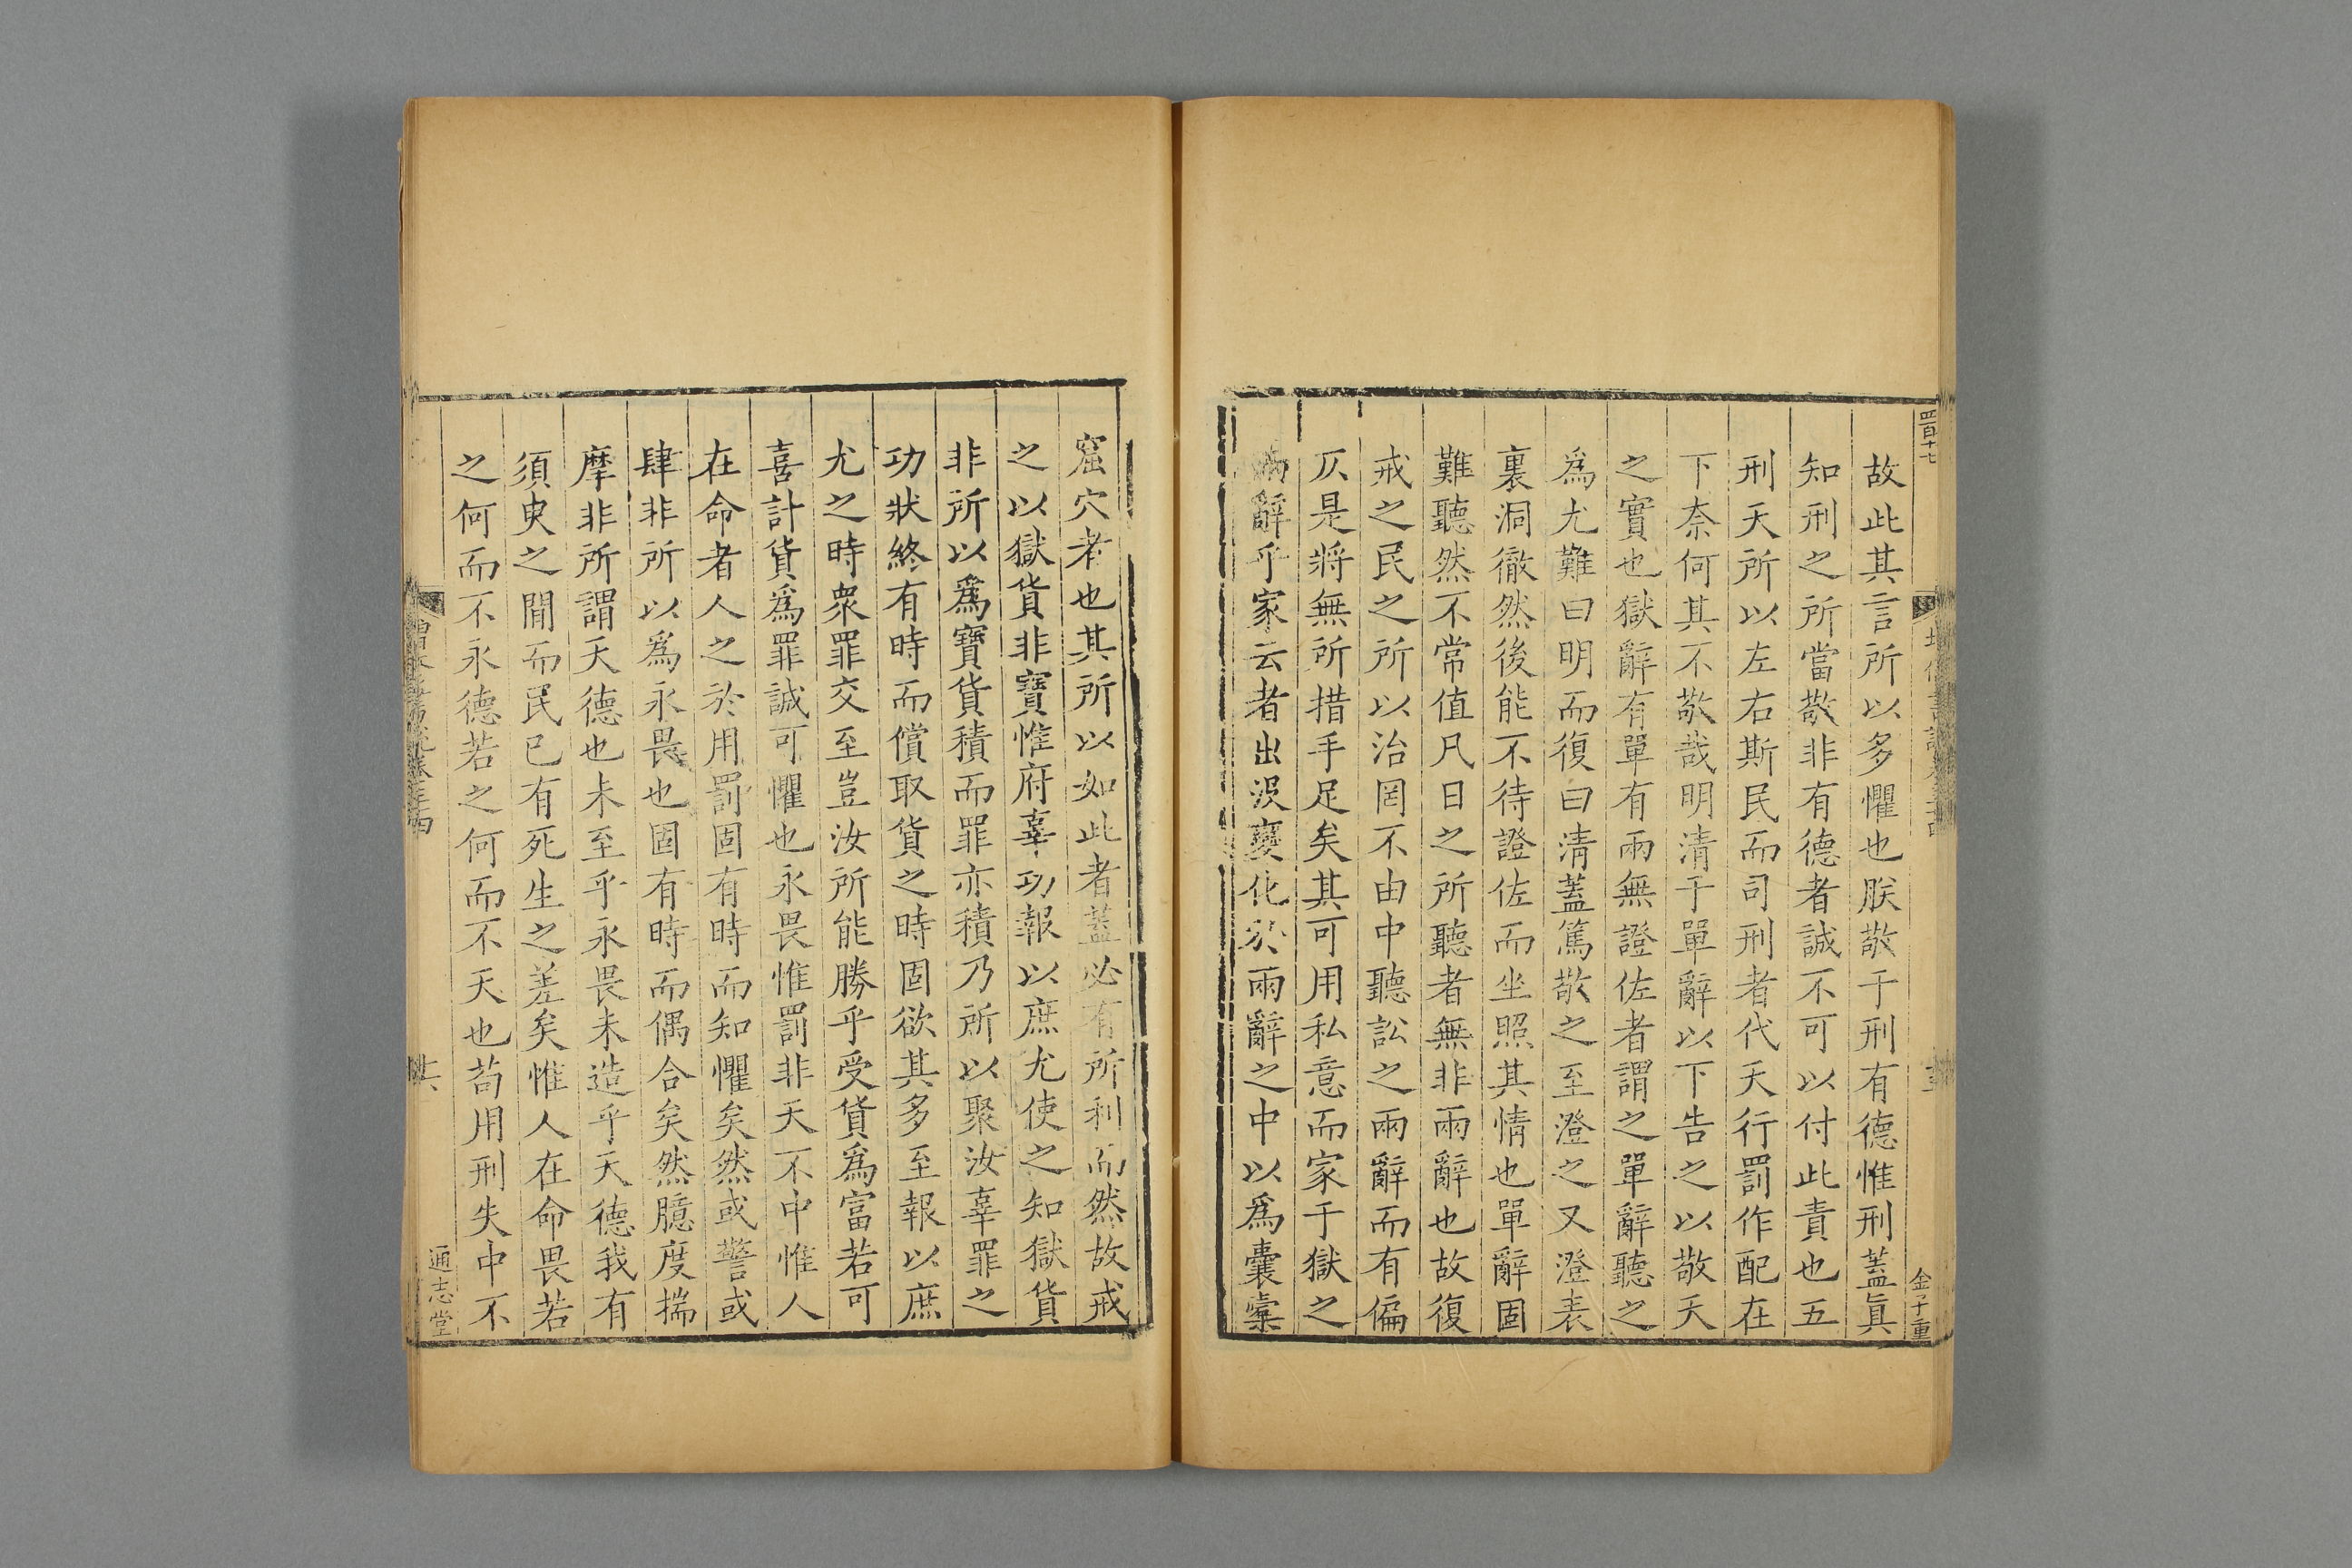 四百十七
金子重
故此其言所以多懼也朕敬于刑有德惟刑蓋眞
知刑之所當敬非有德者誠不可以付此責也五
刑天所以左右斯民而司刑者代天行罰作配在
下奈何其不敬哉明清于單辭以下告之以敬天
之實也獄辭有單有兩無證佐者謂之單辭聽之
爲尤難曰明而復曰清蓋篤敬之至澄之又澄表
裏洞徹然後能不待證佐而坐照其情也單辭固
難聽然不常值凡日之所聽者無非兩辭也故復
戒之民之所以治罔不由中聽訟之兩辭而有偏
仄是將無所措手足矣其可用私意而家于獄之
兩辭乎家云者出沒變化於兩辭之中以爲囊橐
窟穴者也其所以如此者蓋必有所利而然故戒
之以獄貨非寶惟府辜功報以庶尤使之知獄貨
非所以爲寶貨積而罪亦積乃所以聚汝辜罪之
功狀終有時而償取貨之時固欲其多至報以庶
尤之時衆罪交至豈汝所能勝乎受貨爲富若可
喜計貨爲罪誠可懼也永畏惟罰非天不中惟人
在命者人之於用罰固有時而知懼矣然或警或
肆非所以爲永畏也固有時而偶合矣然臆度揣
摩非所謂天德也未至乎永畏未造乎天德我有
須臾之間而民已有死生之差矣惟人在命畏若
之何而不永德若之何而不天也苟用刑失中不
通志堂